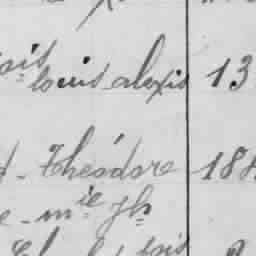 ois
louis alexis 13
d - Théodore 184
e - m.ie Jh